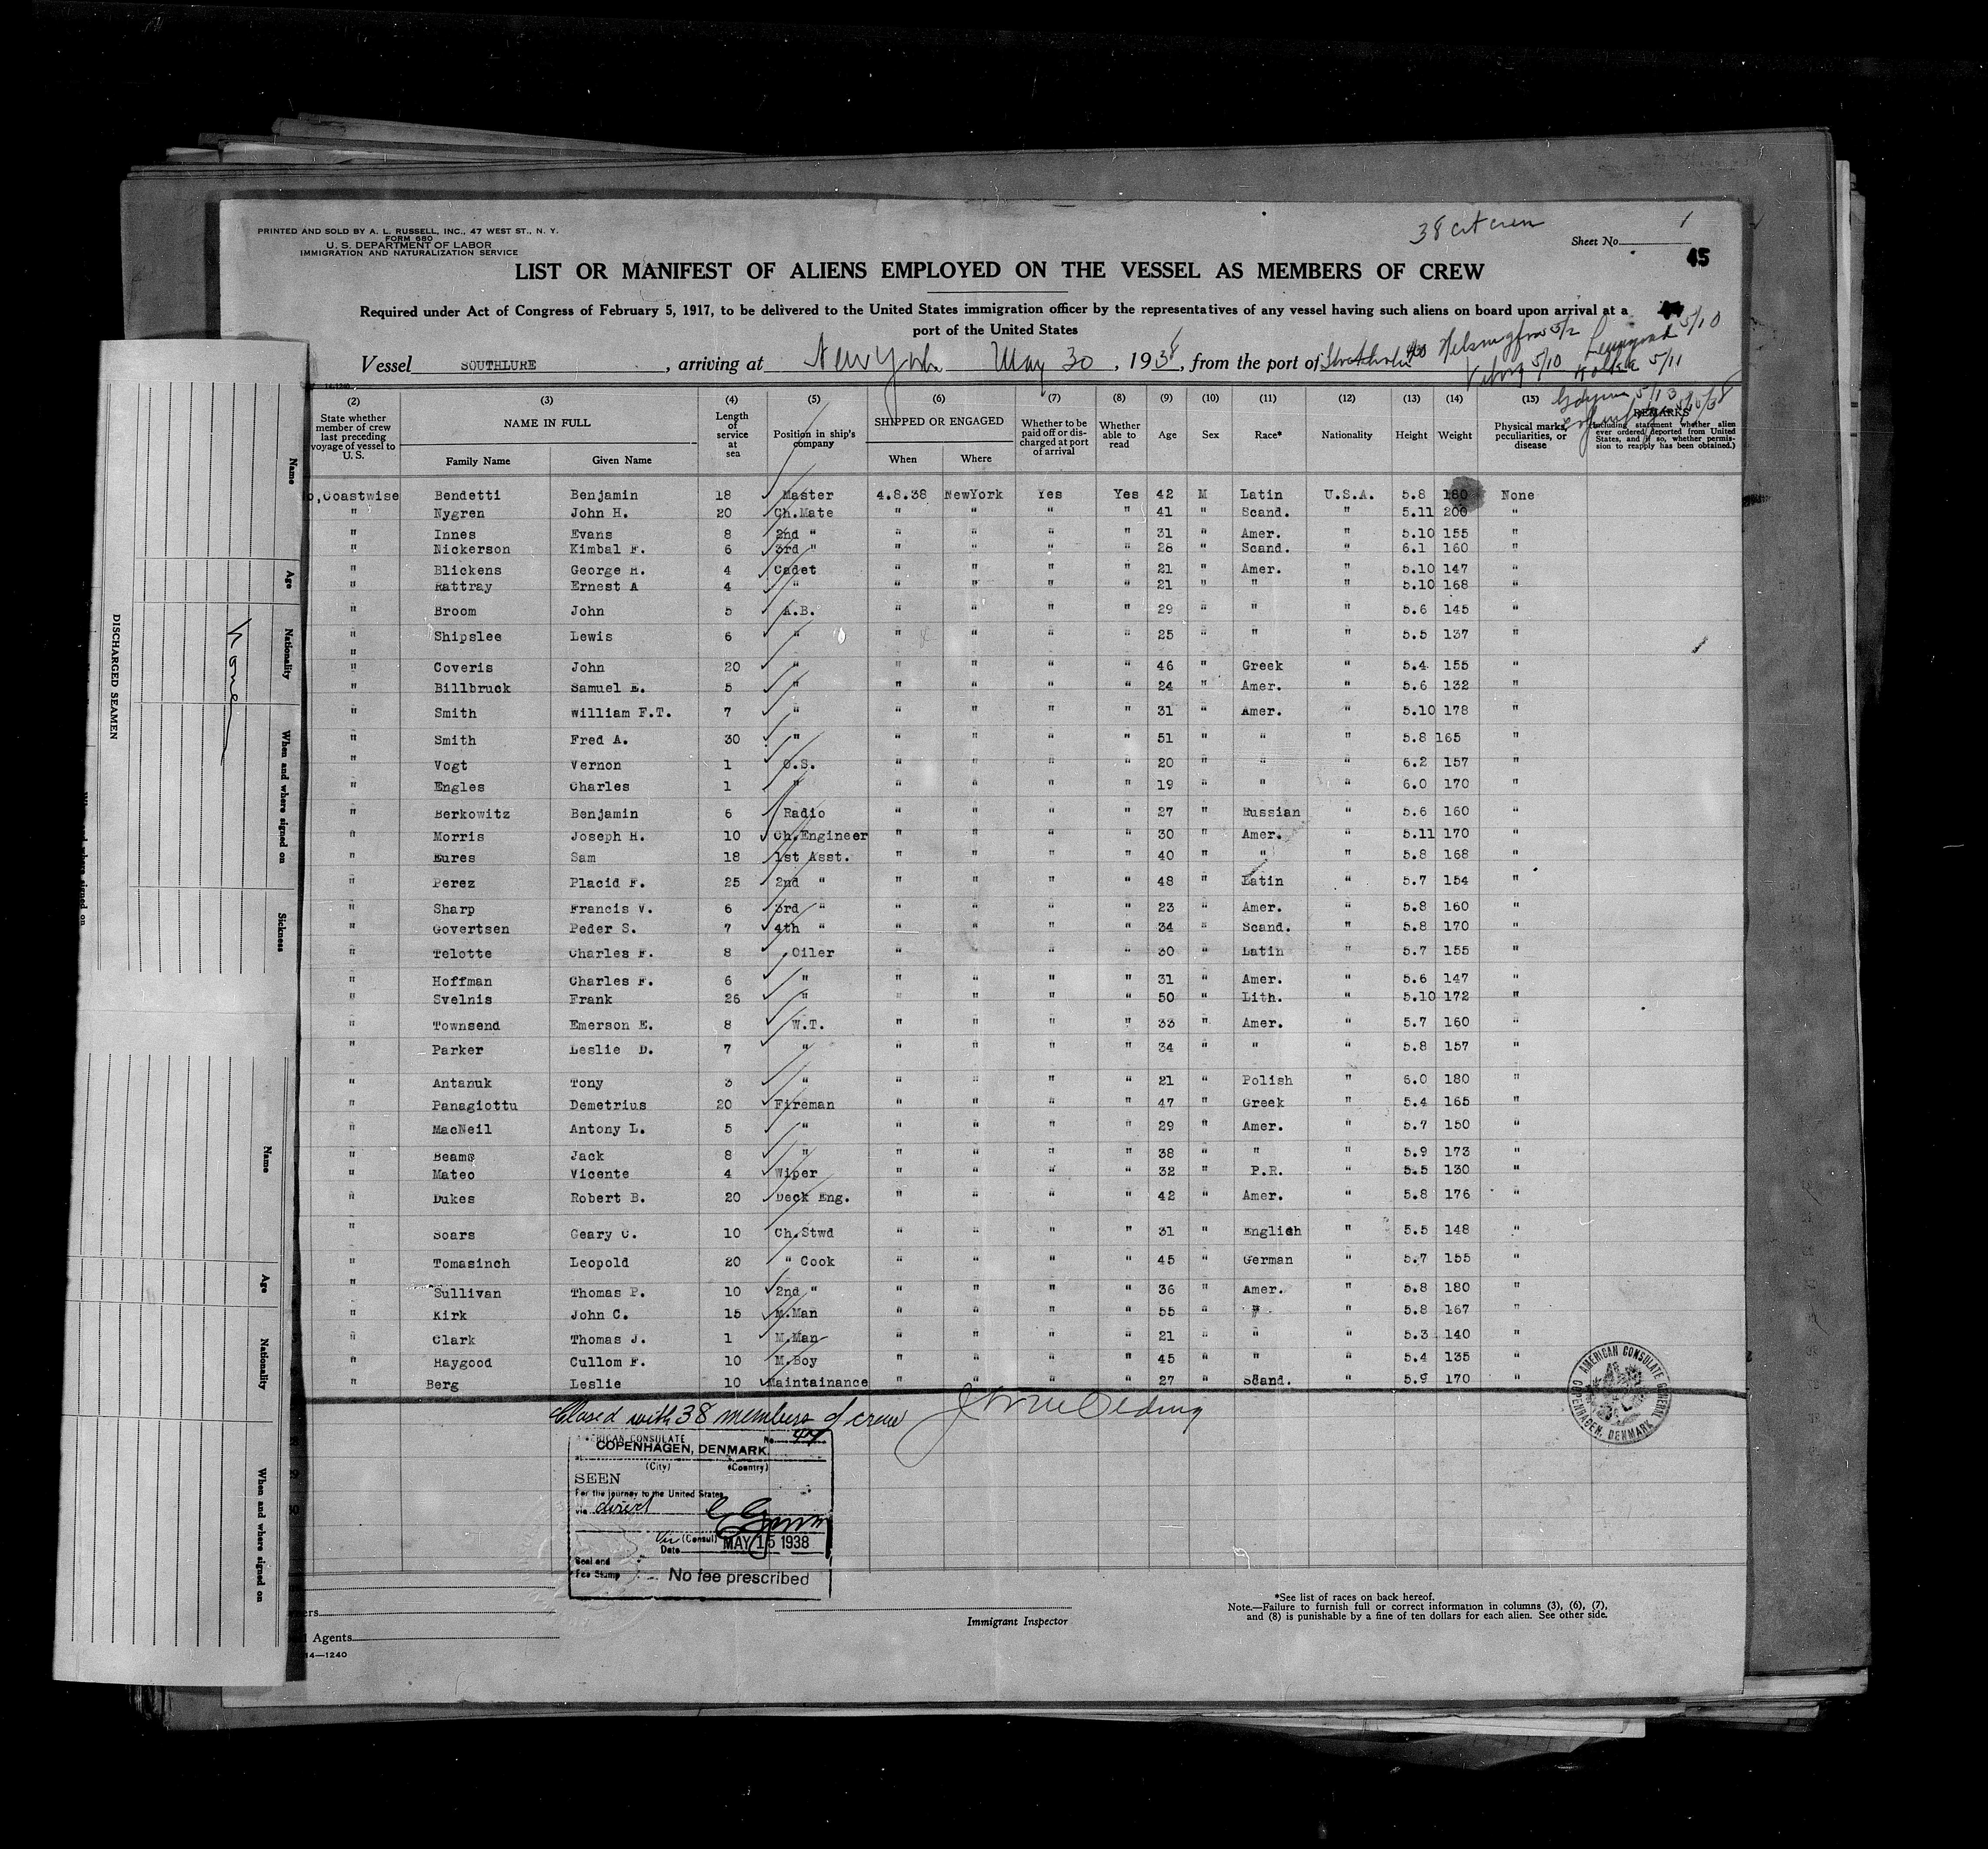 38 cit crew
PRINTED AND SOLD BY A. L. RUSSELL, INC., 47 WEST ST., N. Y.
FORM 680
U. S. DEPARTMENT OF LABOR
IMMIGRATION AND NATURALIZATION SERVICE
Sheet No. 1
45
LIST OR MANIFEST OF ALIENS EMPLOYED ON THE VESSEL AS MEMBERS OF CREW
Required under Act of Congress of February 5, 1917, to be delivered to the United States immigration officer by the representatives of any vessel having such aliens on board upon arrival at a
port of the United States
Vessel SOUTHLURE, arriving at New York May 30, 1938, from the port of Stockholm 4/30 Helsingfors 5/2 Leningrad 5/10
Viborg 5/10 Kotka 5/11
Gdynia 5/13
14-1240
(2) (3) (4) (5) (6) (7) (8) (9) (10) (11) (12) (13) (14) (15)
State whether member of crew last preceding voyage of vessel to U. S. NAME IN FULL Family Name Given Name Length of service at sea Position in ship's company SHIPPED OR ENGAGED When Where Whether to be paid off or discharged at port of arrival Whether able to read Age Sex Race* Nationality Height Weight Physical marks, peculiarities, or disease REMARKS (Including statement whether alien ever ordered deported from United States, and if so, whether permission to reapply has been obtained.)
,Coastwise Bendetti Benjamin 18 Master 4.8.38 NewYork Yes Yes 42 M Latin U.S.A. 5.8 180 None
" Nygren John H. 20 Ch.Mate " " " " 41 " Scand. " 5.11 200 "
" Innes Evans 8 2nd " " " " " 31 " Amer. " 5.10 155 "
" Nickerson Kimbal F. 6 3rd " " " " " 28 " Scand. " 6.1 160 "
" Blickens George H. 4 Cadet " " " " 21 " Amer. " 5.10 147 "
" Rattray Ernest A 4 " " " " " 21 " " " 5.10 168 "
" Broom John 5 A.B. " " " " 29 " " " 5.6 145 "
" Shipslee Lewis 6 " " " " " 25 " " " 5.5 137 "
"
" Coveris John 20 " " " " " 46 " Greek " 5.4 155 "
" Billbruck Samuel E. 5 " " " " " 24 " Amer. " 5.6 132 "
" Smith William F.T. 7 " " " " " 31 " Amer. " 5.10 178 "
" Smith Fred A. 30 " " " " " 51 " " " 5.8 165 "
" Vogt Vernon 1 O.S. " " " " 20 " " " 6.2 157 "
" Engles Charles 1 " " " " " 19 " " " 6.0 170 "
" Berkowitz Benjamin 6 Radio " " " " 27 " Russian " 5.6 160 "
" Morris Joseph H. 10 Ch.Engineer " " " " 30 " Amer. " 5.11 170 "
" Eures Sam 18 1st Asst. " " " " 40 " " " 5.8 168 "
" Perez Placid F. 25 2nd " " " " " 48 " Latin " 5.7 154 "
" Sharp Francis V. 6 3rd " " " " " 23 " Amer. " 5.8 160 "
" Govertsen Peder S. 7 4th " " " " " 34 " Scand. " 5.8 170 "
" Telotte Charles F. 8 Oiler " " " " 30 " Latin " 5.7 155 "
" Hoffman Charles F. 6 " " " " " 31 " Amer. " 5.6 147 "
" Svelnis Frank 26 " " " " " 50 " Lith. " 5.10 172 "
" Townsend Emerson E. 8 W.T. " " " " 33 " Amer. " 5.7 160 "
" Parker Leslie D. 7 " " " " " 34 " " " 5.8 157 "
" Antanuk Tony 3 " " " " " 21 " Polish " 6.0 180 "
" Panagiottu Demetrius 20 Fireman " " " " 47 " Greek " 5.4 165 "
" MacNeil Antony L. 5 " " " " " 29 " Amer. " 5.7 150 "
" Beams Jack 8 " " " " " 38 " " " 5.9 173 "
" Mateo Vicente 4 Wiper " " " " 32 " P.R. " 5.5 130 "
" Dukes Robert B. 20 Deck Eng. " " " " 42 " Amer. " 5.8 176 "
" Soars Geary C. 10 Ch.Stwd " " " " 31 " English " 5.5 148 "
" Tomasinch Leopold 20 " Cook " " " " 45 " German " 5.7 155 "
" Sullivan Thomas P. 10 2nd " " " " " 36 " Amer. " 5.8 180 "
" Kirk John C. 15 M.Man " " " " 55 " " " 5.8 167 "
" Clark Thomas J. 1 M.Man " " " " 21 " " " 5.3 140 "
" Haygood Cullom F. 10 M.Boy " " " " 45 " " " 5.4 135 "
" Berg Leslie 10 Maintainance " " " " 27 " Scand. " 5.9 170 "
Closed with 38 members of crew
AMERICAN CONSULATE No. 44
COPENHAGEN, DENMARK.
(City) (Country)
SEEN
For the journey to the United States
via direct
(Consul)
Date MAY 15 1938
Seal and
Fee Stamp No fee prescribed
AMERICAN CONSULATE GENERAL COPENHAGEN, DENMARK
Immigrant Inspector
*See list of races on back hereof.
Note.—Failure to furnish full or correct information in columns (3), (6), (7),
and (8) is punishable by a fine of ten dollars for each alien. See other side.
Agents
14—1240
DISCHARGED SEAMEN
Name Age Nationality When and where signed on Sickness
None
Name Age Nationality When and where signed on